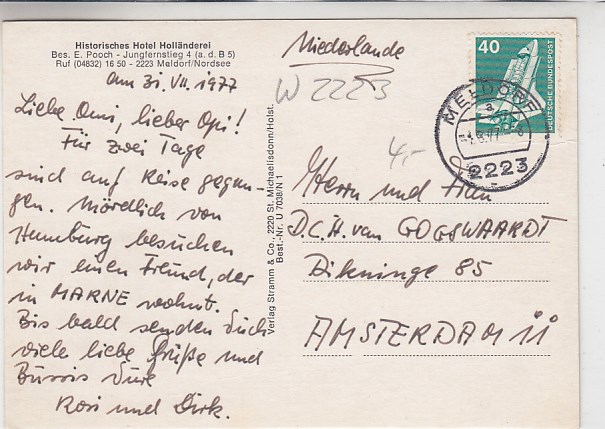 Historisches Hotel Holländerei
Bes. E. Pooch - Jungfernstieg 4 (a. d. B 5)
Ruf (04832) 16 50 - 2223 Meldorf/Nordsee
am 31. VII. 1977
Liebe Omi, lieber Opi!
Für zwei Tage
sind auf Reise gegan-
gen. Nördlich von
Hamburg besuchen
wir einen Freund, der
in MARNE wohnt.
Bis bald senden Euch
viele liebe Grüße und
Bussis Eure
Rosi und Dirk.
Verlag Stramm & Co., 2220 St. Michaelisdonn/Holst.
Best.-Nr. U 7038/N 1
Niederlande
W 2223
4,-
40
DEUTSCHE BUNDESPOST
MELDORF
a
2223
Herrn und Frau
D.C.H. van GOGSWAARDT
Dikninge 85
AMSTERDAM 11